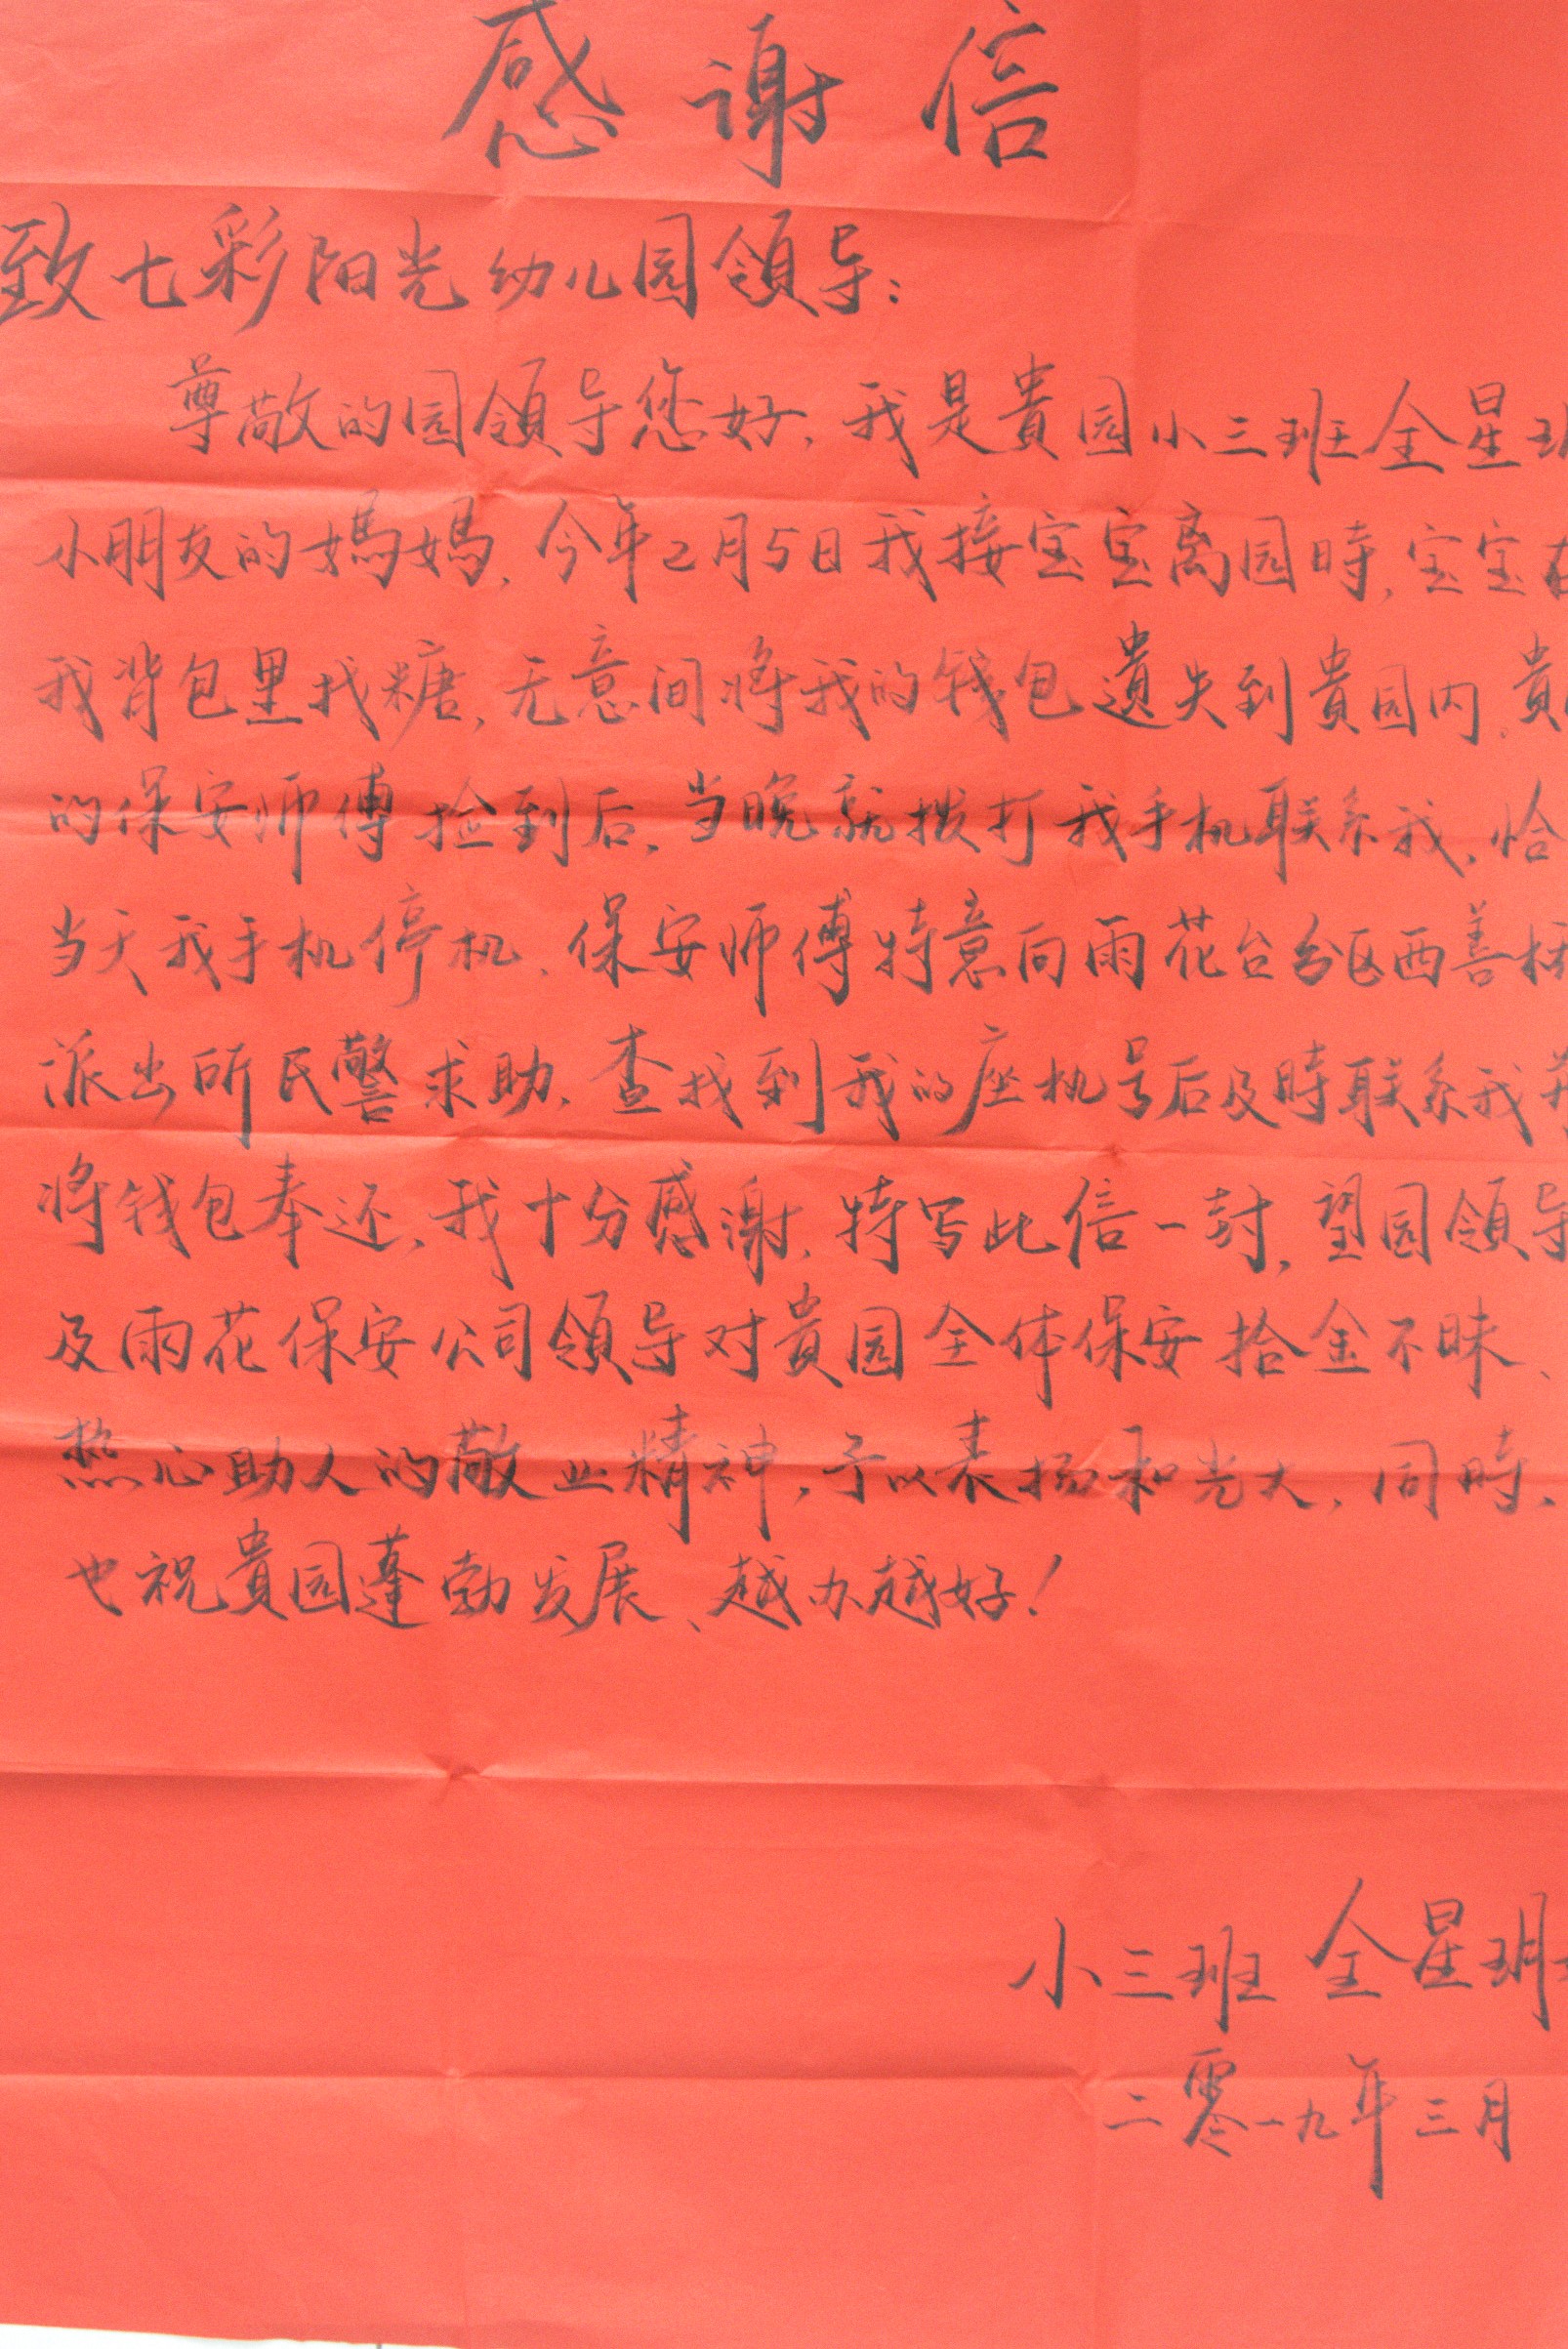 感谢信
致七彩阳光幼儿园领导：
尊敬的园领导您好，我是貴园小三班全星玥
小朋友的媽媽，今年2月5日我接宝宝离园時，宝宝在
我背包里找糖，无意间将我的钱包遗失到貴园内，貴
的保安师傅捡到后，当晚就拨打我手机联系我，恰
当天我手机停机，保安师傅特意向雨花台分区西善桥
派出所民警求助，查找到我的座机号后及時联系我并
将钱包奉还，我十分感谢，特写此信一封，望园领导
及雨花保安公司领导对貴园全体保安拾金不昧、
热心助人的敬业精神，予以表扬和光大，同時，
也祝貴园蓬勃发展、越办越好！
小三班 全星玥
二零一九年三月